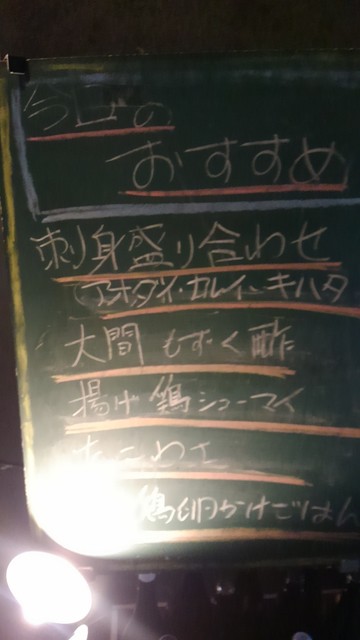 今日の
おすすめ
刺身盛り合わせ
(アオダイ・カレイ・キハタ
大間 もずく酢
揚げ鶏シューマイ
たこわさ
鶏卵かけごはん